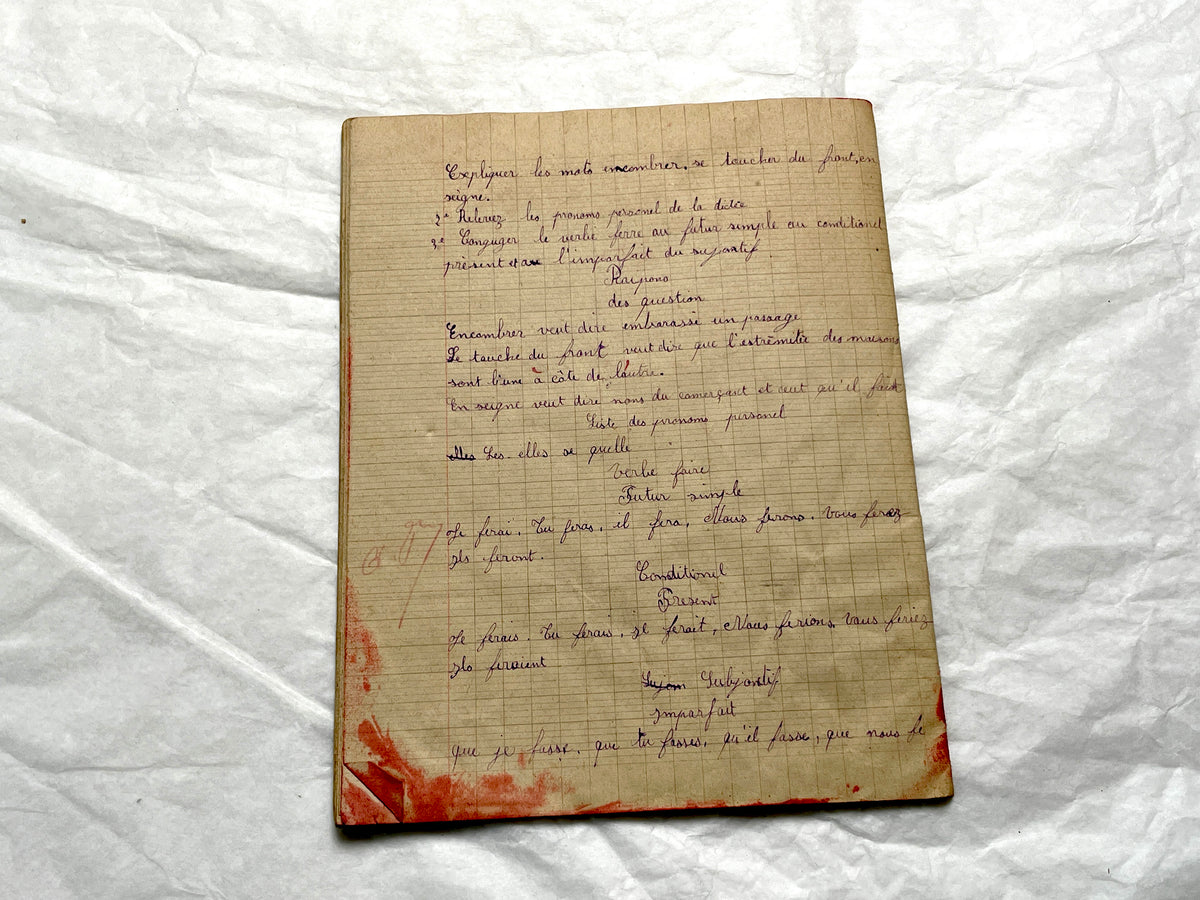 Expliquer les mots encombrer. se toucher du front, en
seigne.
2° Relevez les pronoms personel de la dictée
3° Conguger le verbe ferre au futur simple au conditionel
présent et au l'imparfait du sujontif
Raipons
des question
Encombrer veut dire embarassé un passage
Se touche du front veut dire que l'estrémitée des maisons
sont l'une à côte de l'autre.
En seigne veut dire nons du comerçant et ceut qu'il fait
Liste des pronoms personel
elles Les. elles se quelle
Verbe faire
Futur simple
Je ferai. Tu feras. il fera, Nous ferons. vous ferez
Ils feront.
Conditionel
Present
Je ferais. Tu ferais. Il ferait, Nous ferions. vous feriez
Ils feraient
Sujon Subjontif
imparfait
que je fasse. que tu fasses. qu'il fasse, que nous fe